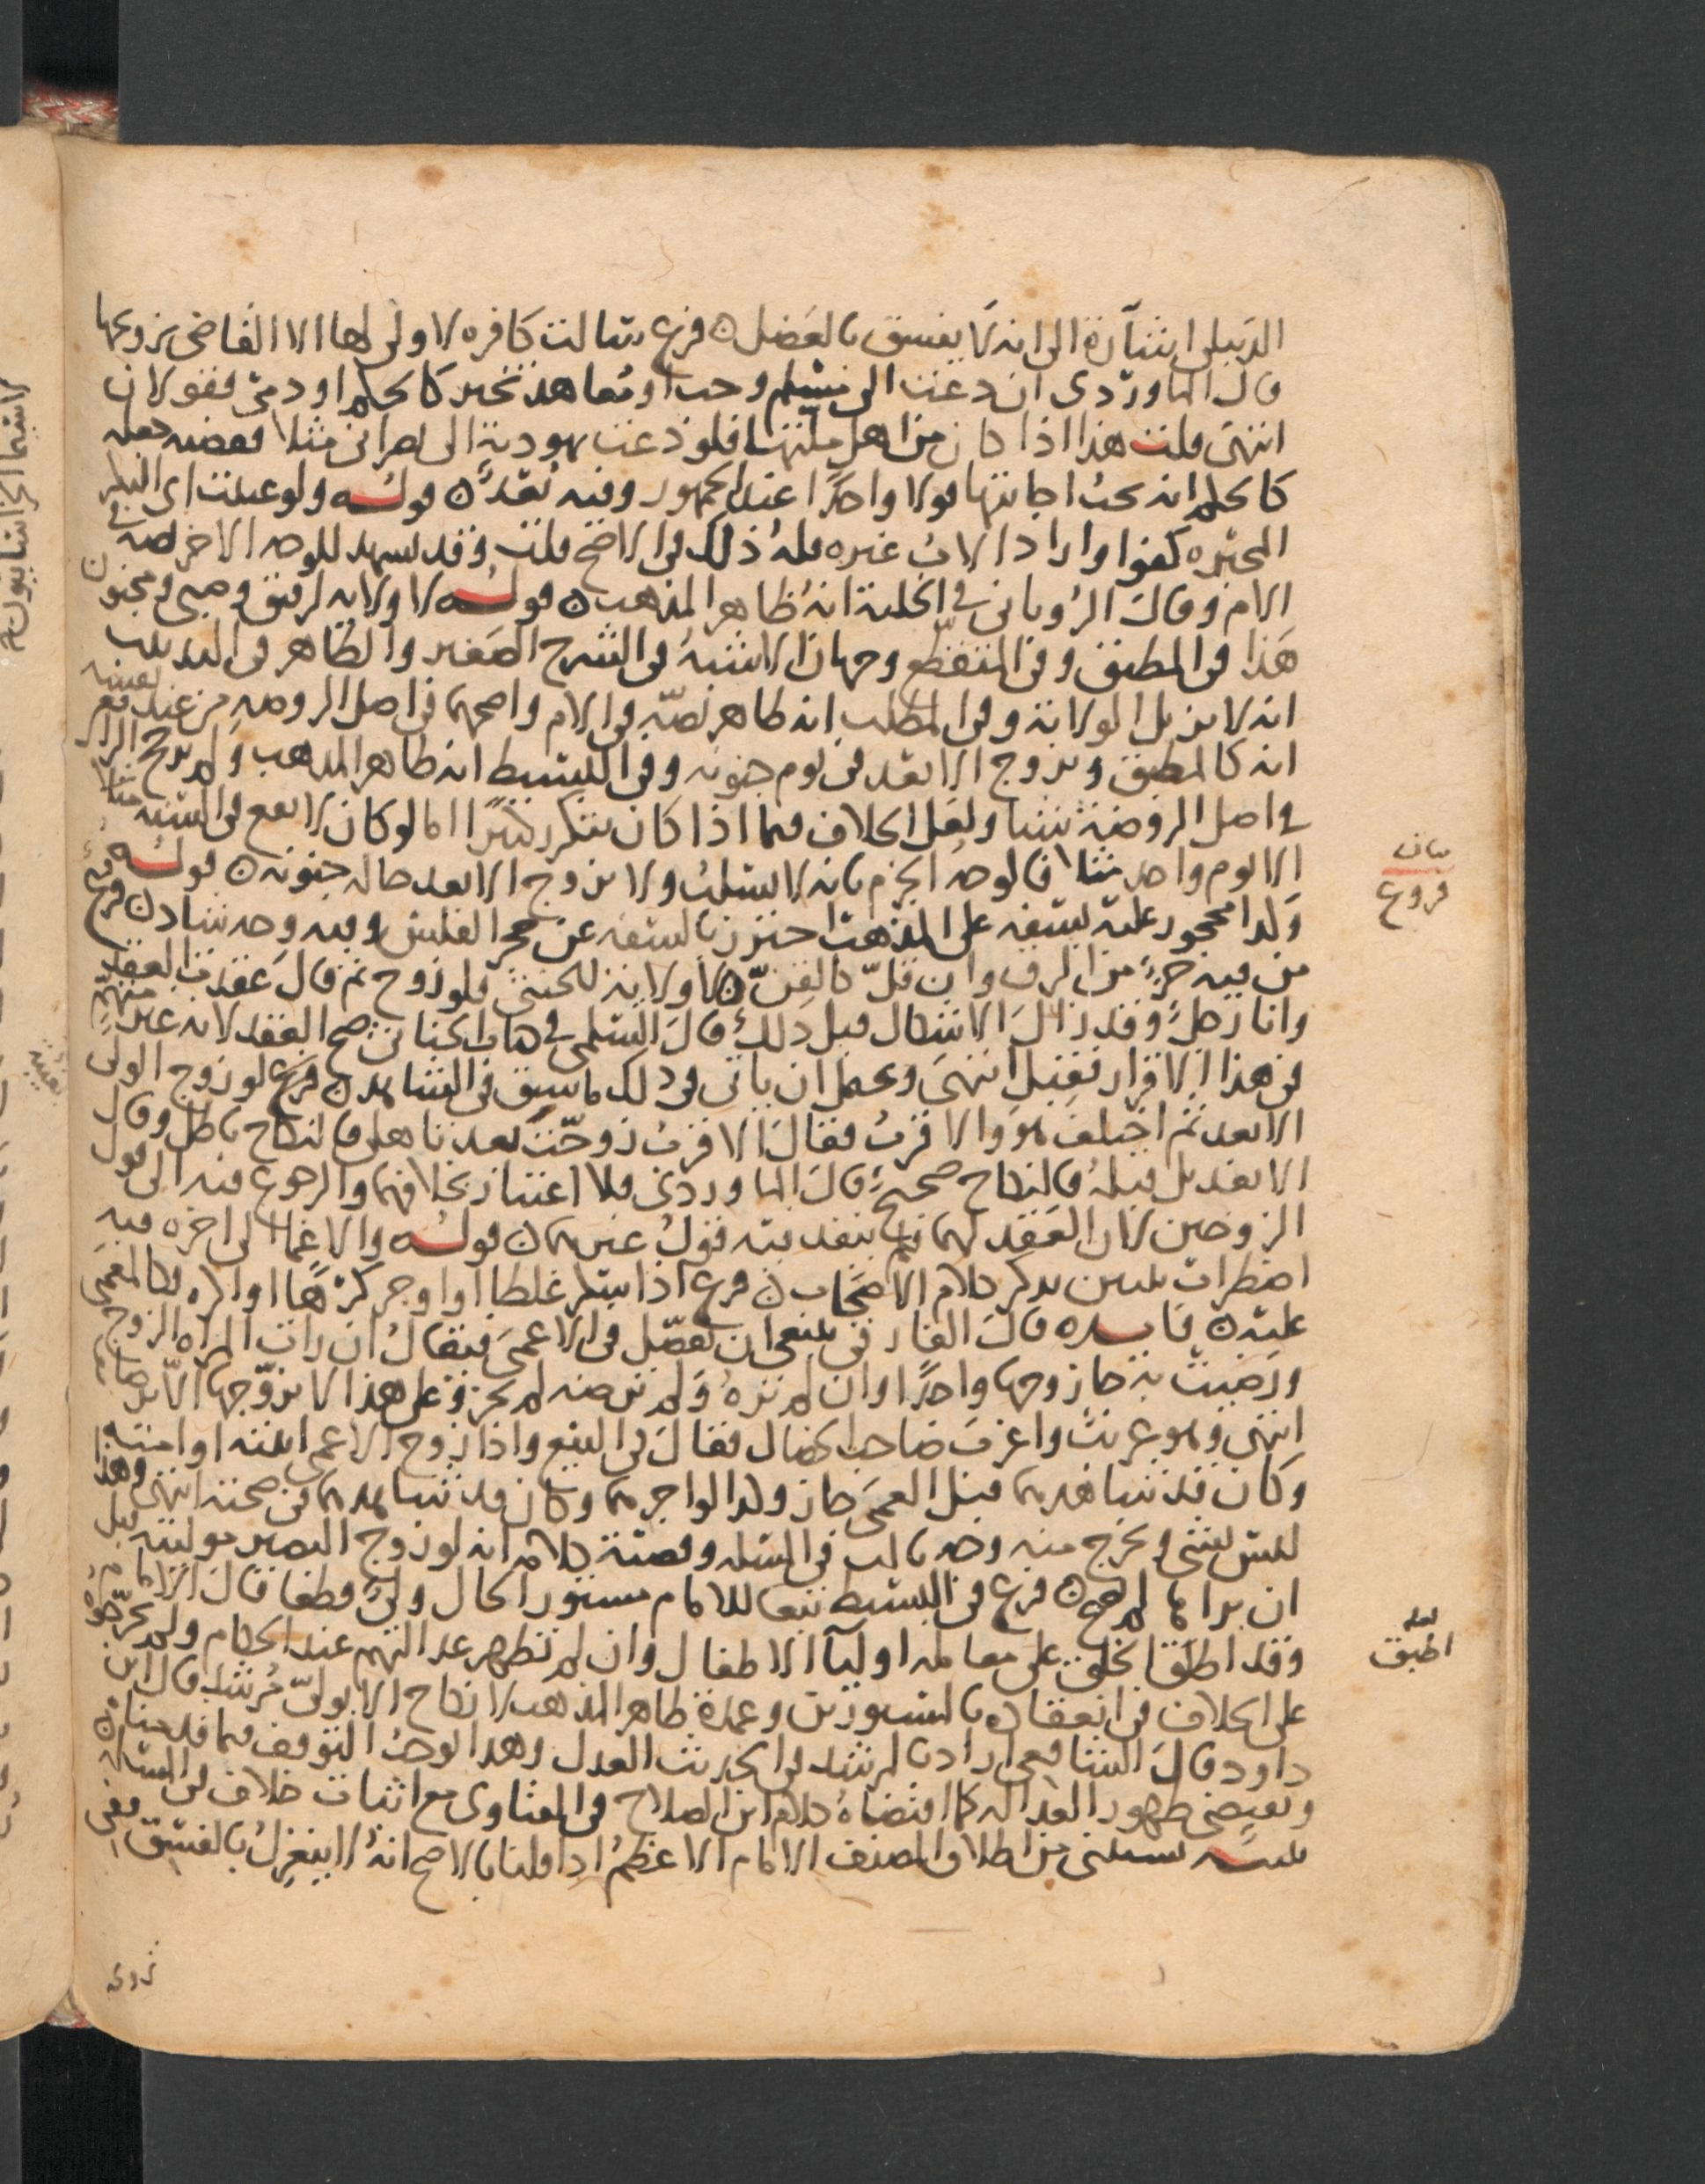 الدبيلي اشارة الى انه لا يفسق بالعضل ن فرع سالت كافره لا ولي لها الا القاضي يزوجها
قال الماوردي ان دعت الى مسلم وجب او معاهد تخير كالحكم او دمي فقولان
انتهى قلت هذا اذا كان من اهل ملتها فلو دعت يهودية الى نصراني مثلا فقضيه جعله
كالحكم انه يجب اجابتها قولا واحدًا عند الجمهور وفيه بُعْد ن قوله ولو عينت اي البكر
المجبره كفوا واراد الاب غيره فله ذلك في الاصح قلت وقد يشهد للوجه الاخر نصه في
الام وقال الروياني في الحلية انه ظاهر المذهب ن قوله لا ولايه لرقيق وصبي ومجنون
هذا في المطبق وفي المتقطع وجهان الاشبه في الشرح الصغير والظاهر في التذنيب
انه لا يزيل الولاية وفي المطلب انه ظاهر نصه في الام واصحهما في اصل الروضه من عند نفسه
انه كالمطبق ويزوج الابعد في يوم جنونه وفي البسيط انه ظاهر المذهب ولم يرجح الرافعي
في اصل الروضة شيئا ولعل الخلاف فيما اذا كان يتكرر كثيرًا اما لو كان لا يقع في السنه مثلا
الا يوم واحد مثلا فالوجه الجزم بانه لا يسلب ولا يزوج الابعد حاله جنونه ن قوله
وكدا محجور عليه بسفه على المذهب احترز بالسفه عن حجر الفلس وفيه وجه شاد ن فرع
من فيه جزء من الرق وان قلّ كالقن ن لا ولاية للخنثى فلو زوج ثم قال عقدت العقد
وانا رجل وقد زال الاشكال قبل ذلك قال السلمي في كتاب الخناثى صح العقد لانه غير متهم
في هذا الاقرار فقبل انتهى ويحتمل ان ياتي في ذلك ما سبق في الشاهد ن فرع لو زوج الولي
الابعد ثم اختلف هو والاقرب فقال الاقرب زوجت بعد تاهلي فالنكاح باطل وقال
الابعد بل قبله فالنكاح صحيح قال الماوردي فلا اعتبار بخلافهما والرجوع فيه الى قول
الزوجين لان العقد لهما فلم ينفد فيه قول غيرهما ن قوله والاغما الى اخره فيه
اضطراب يتبين بدكر كلام الاصحاب ن فرع اذا سكر غلطا او اوجر كرهًا او اكره فكالمغمى
عليه ن فايده قال الفارقي ينبغي ان يفصّل في الاعمى فيقال ان رات المراه الزوج
ورضيت به جاز وجها واحدًا وان لم تره ولم ترضه لم يجز وعلى هذا لا يزوّجها الا برضاها
انتهى وهو غريب واغرب صاحب الخصال فقال في البيع واذا زوج الاعمى ابنته او امته
وكان قد شاهدهما قبل العمى جاز وكدا لو اجرهما وكان قد شاهدهما في صحته انتهى وهذا
ليس بشي ويخرج منه وجه ثالث في المسله وقضية كلامه انه لو زوج البصير موليته قبل
ان يراها لم يصح ن فرع في البسيط تبعا للامام مستور الحال ولي قطعا قال الامام
وقد اطبق الخلق على معامله اوليآ الاطفال وان لم تظهر عدالتهم عند الحكام ولم يخرجوه
على الخلاف في انعقاده بالمستورين وعمدة ظاهر المذهب لا نكاح الا بولي مُرشد قال ابن
داود قال الشافعي اراد بالمرشد في الحديث العدل وهدا يوجب التوقف فيما قدمناه
ويقتضي ظهور العداله كما اقتضاه كلام ابن الصلاح في الفتاوى مع اثبات خلاف في المساله
تنبيه يستثنى من اطلاق المصنف الامام الاعظم ادا قلنا بالاصح انه لا ينعزل بالفسق ففي
بيان
فروع
لعله
اطبق